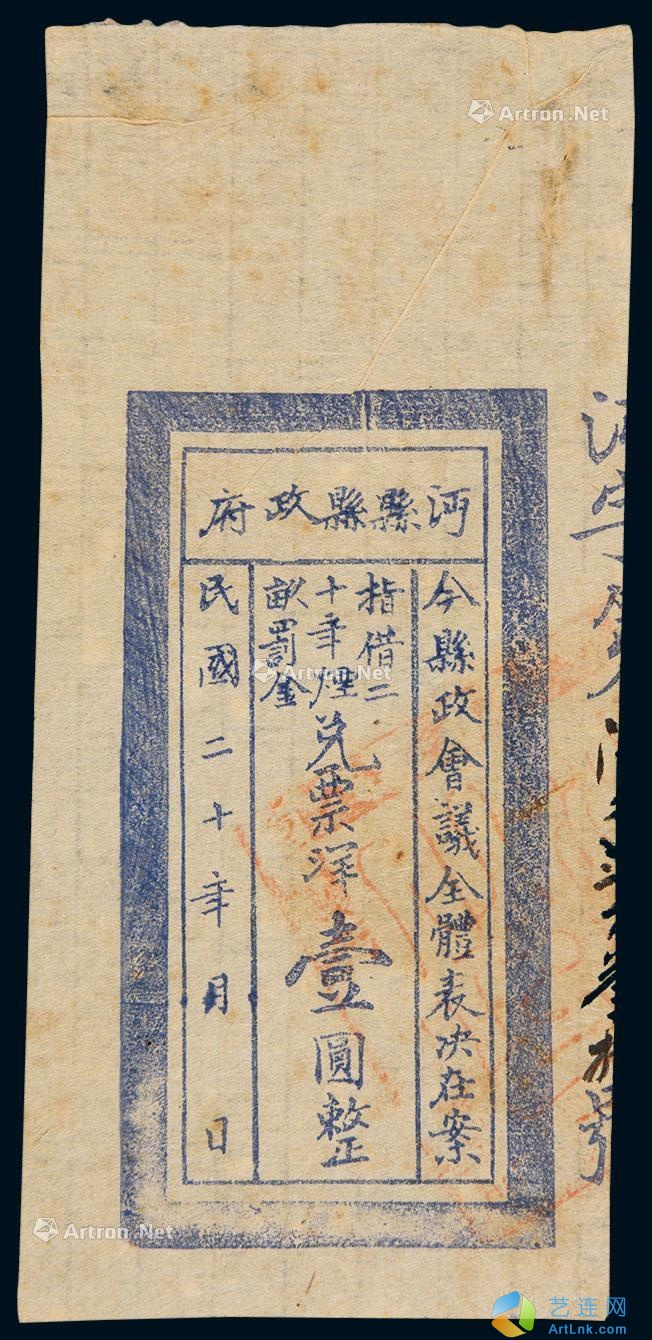 沔縣縣政府
今縣政會議全體表决在案
指借二
十年煙
畝罰金
兌票洋壹圓整
民國二十年月日
Artron.Net
Artron.Net
Artron.Net
艺连网
ArtLnk.com